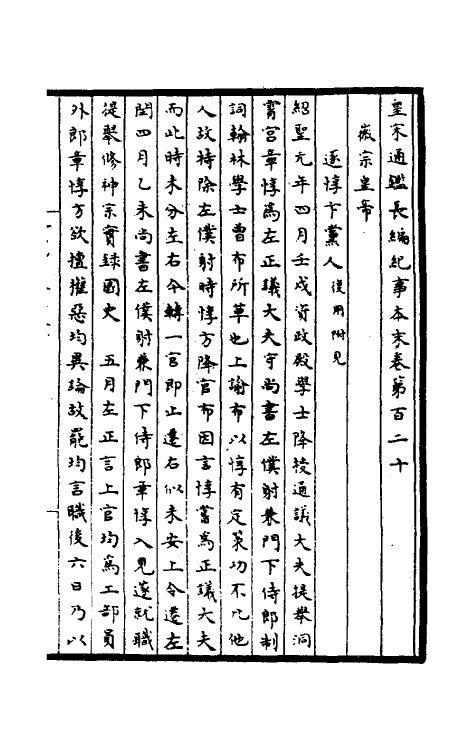 皇宋通鑑長編紀事本末卷第百二十
徽宗皇帝
逐惇卞黨人復用附見
紹聖元年四月壬戌資政殿學士降授通議大夫提舉洞
霄宮章惇爲左正議大夫守尚書左僕射兼門下侍郎制
詞翰林學士曾布所草也上諭布以惇有定策功不比他
人故特除左僕射時惇方降官布因言惇嘗爲正議大夫
而此時未分左右今轉一官即止遷右似未安上令遷左
閏四月乙未尚書左僕射兼門下侍郎章惇入見遂就職
提舉修神宗實録國史 五月左正言上官均爲工部員
外郎章惇方欲擅權惡均異論故罷均言職後六日乃以